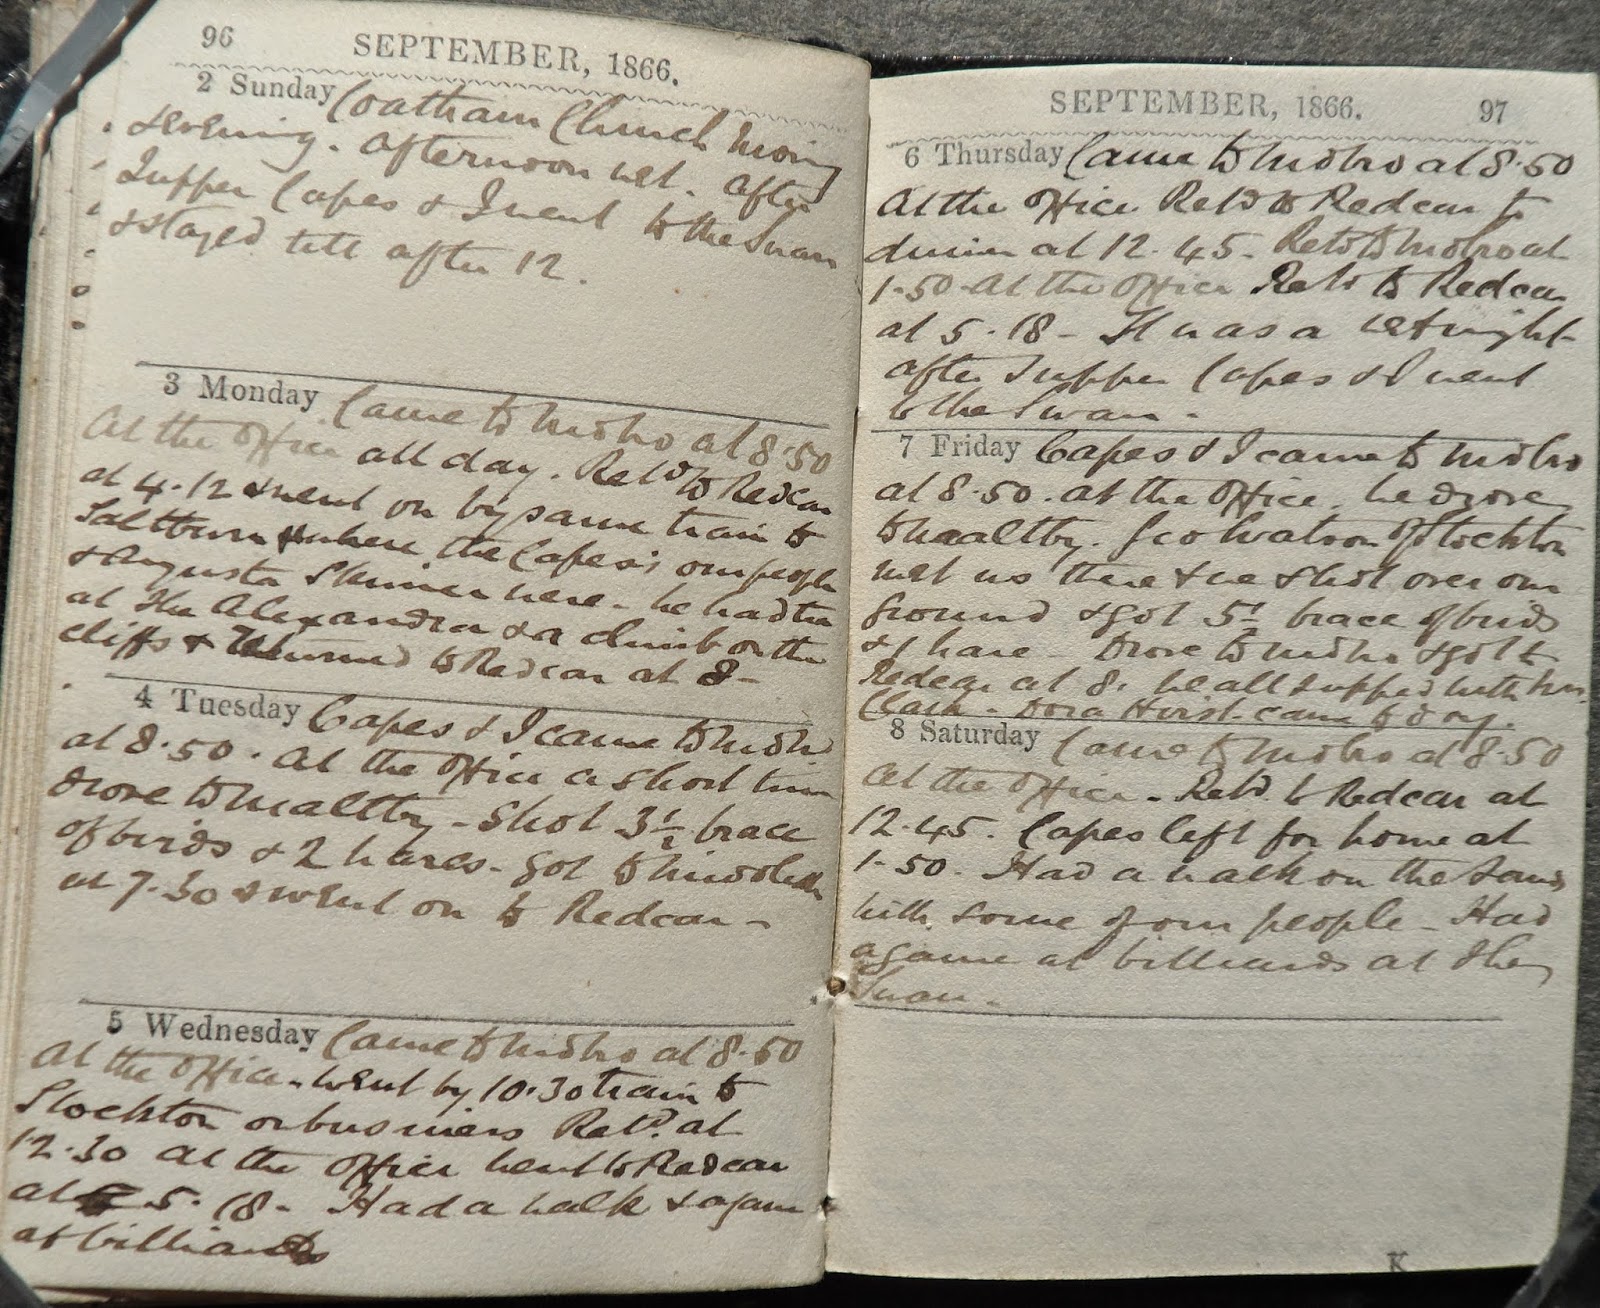 96
SEPTEMBER, 1866.
2 Sunday Coatham Church morng
& evening. Afternoon wet. After
Supper Capes & I went to the Swan
& stayed till after 12.
3 Monday Came to Mdbro at 8.50
At the Office all day. Retd to Redcar
at 4.12 & went on by same train to
Saltburn where the Capes's our people
& Augusta were. We had tea
at the Alexandra & a climb on the
cliffs & returned to Redcar at 8-
4 Tuesday Capes & I came to Mdbro
at 8.50. At the Office a short time
drove to Maltby - Shot 3½ brace
of birds & 2 hares. Got to Middlesbro
at 7.30 & went on to Redcar -
5 Wednesday Came to Mdbro at 8.50
At the Office. Went by 10.30 train to
Stockton on business Retd. at
12.30 At the Office Went to Redcar
at 5.18. Had a walk & a game
at billiards
SEPTEMBER, 1866.
97
6 Thursday Came to Mdbro at 8.50
At the Office Retd to Redcar to
dinner at 12.45. Retd to Mdbro at
1.50 At the Office Retd to Redcar
at 5.18 - It was a wet night
after supper Capes & I went
to the Swan -
7 Friday Capes & I came to Mdbro
at 8.50. At the Office. We drove
to Maltby. Geo Watson of Stockton
met us there & we shot over our
ground & got 5½ brace of birds
& 1 hare - Drove to Mdbro & got to
Redcar at 8. We all supped with
Clark - Dora Hirst came to day.
8 Saturday Came to Mdbro at 8.50
At the Office - Retd. to Redcar at
12.45. Capes left for home at
1.50. Had a walk on the Sands
with some of our people - Had
a game at billiards at the
Swan -
K